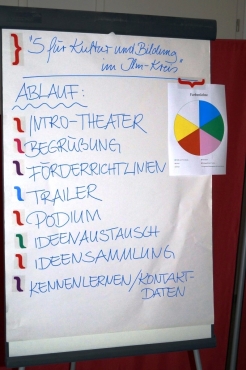 "S für Kultur und Bildung
im Ilm-Kreis"
ABLAUF:
INTRO-THEATER
BEGRÜßUNG
FÖRDERRICHTLINIEN
TRAILER
PODIUM
IDEENAUSTAUSCH
IDEENSAMMLUNG
KENNENLERNEN/KONTAKT-
DATEN